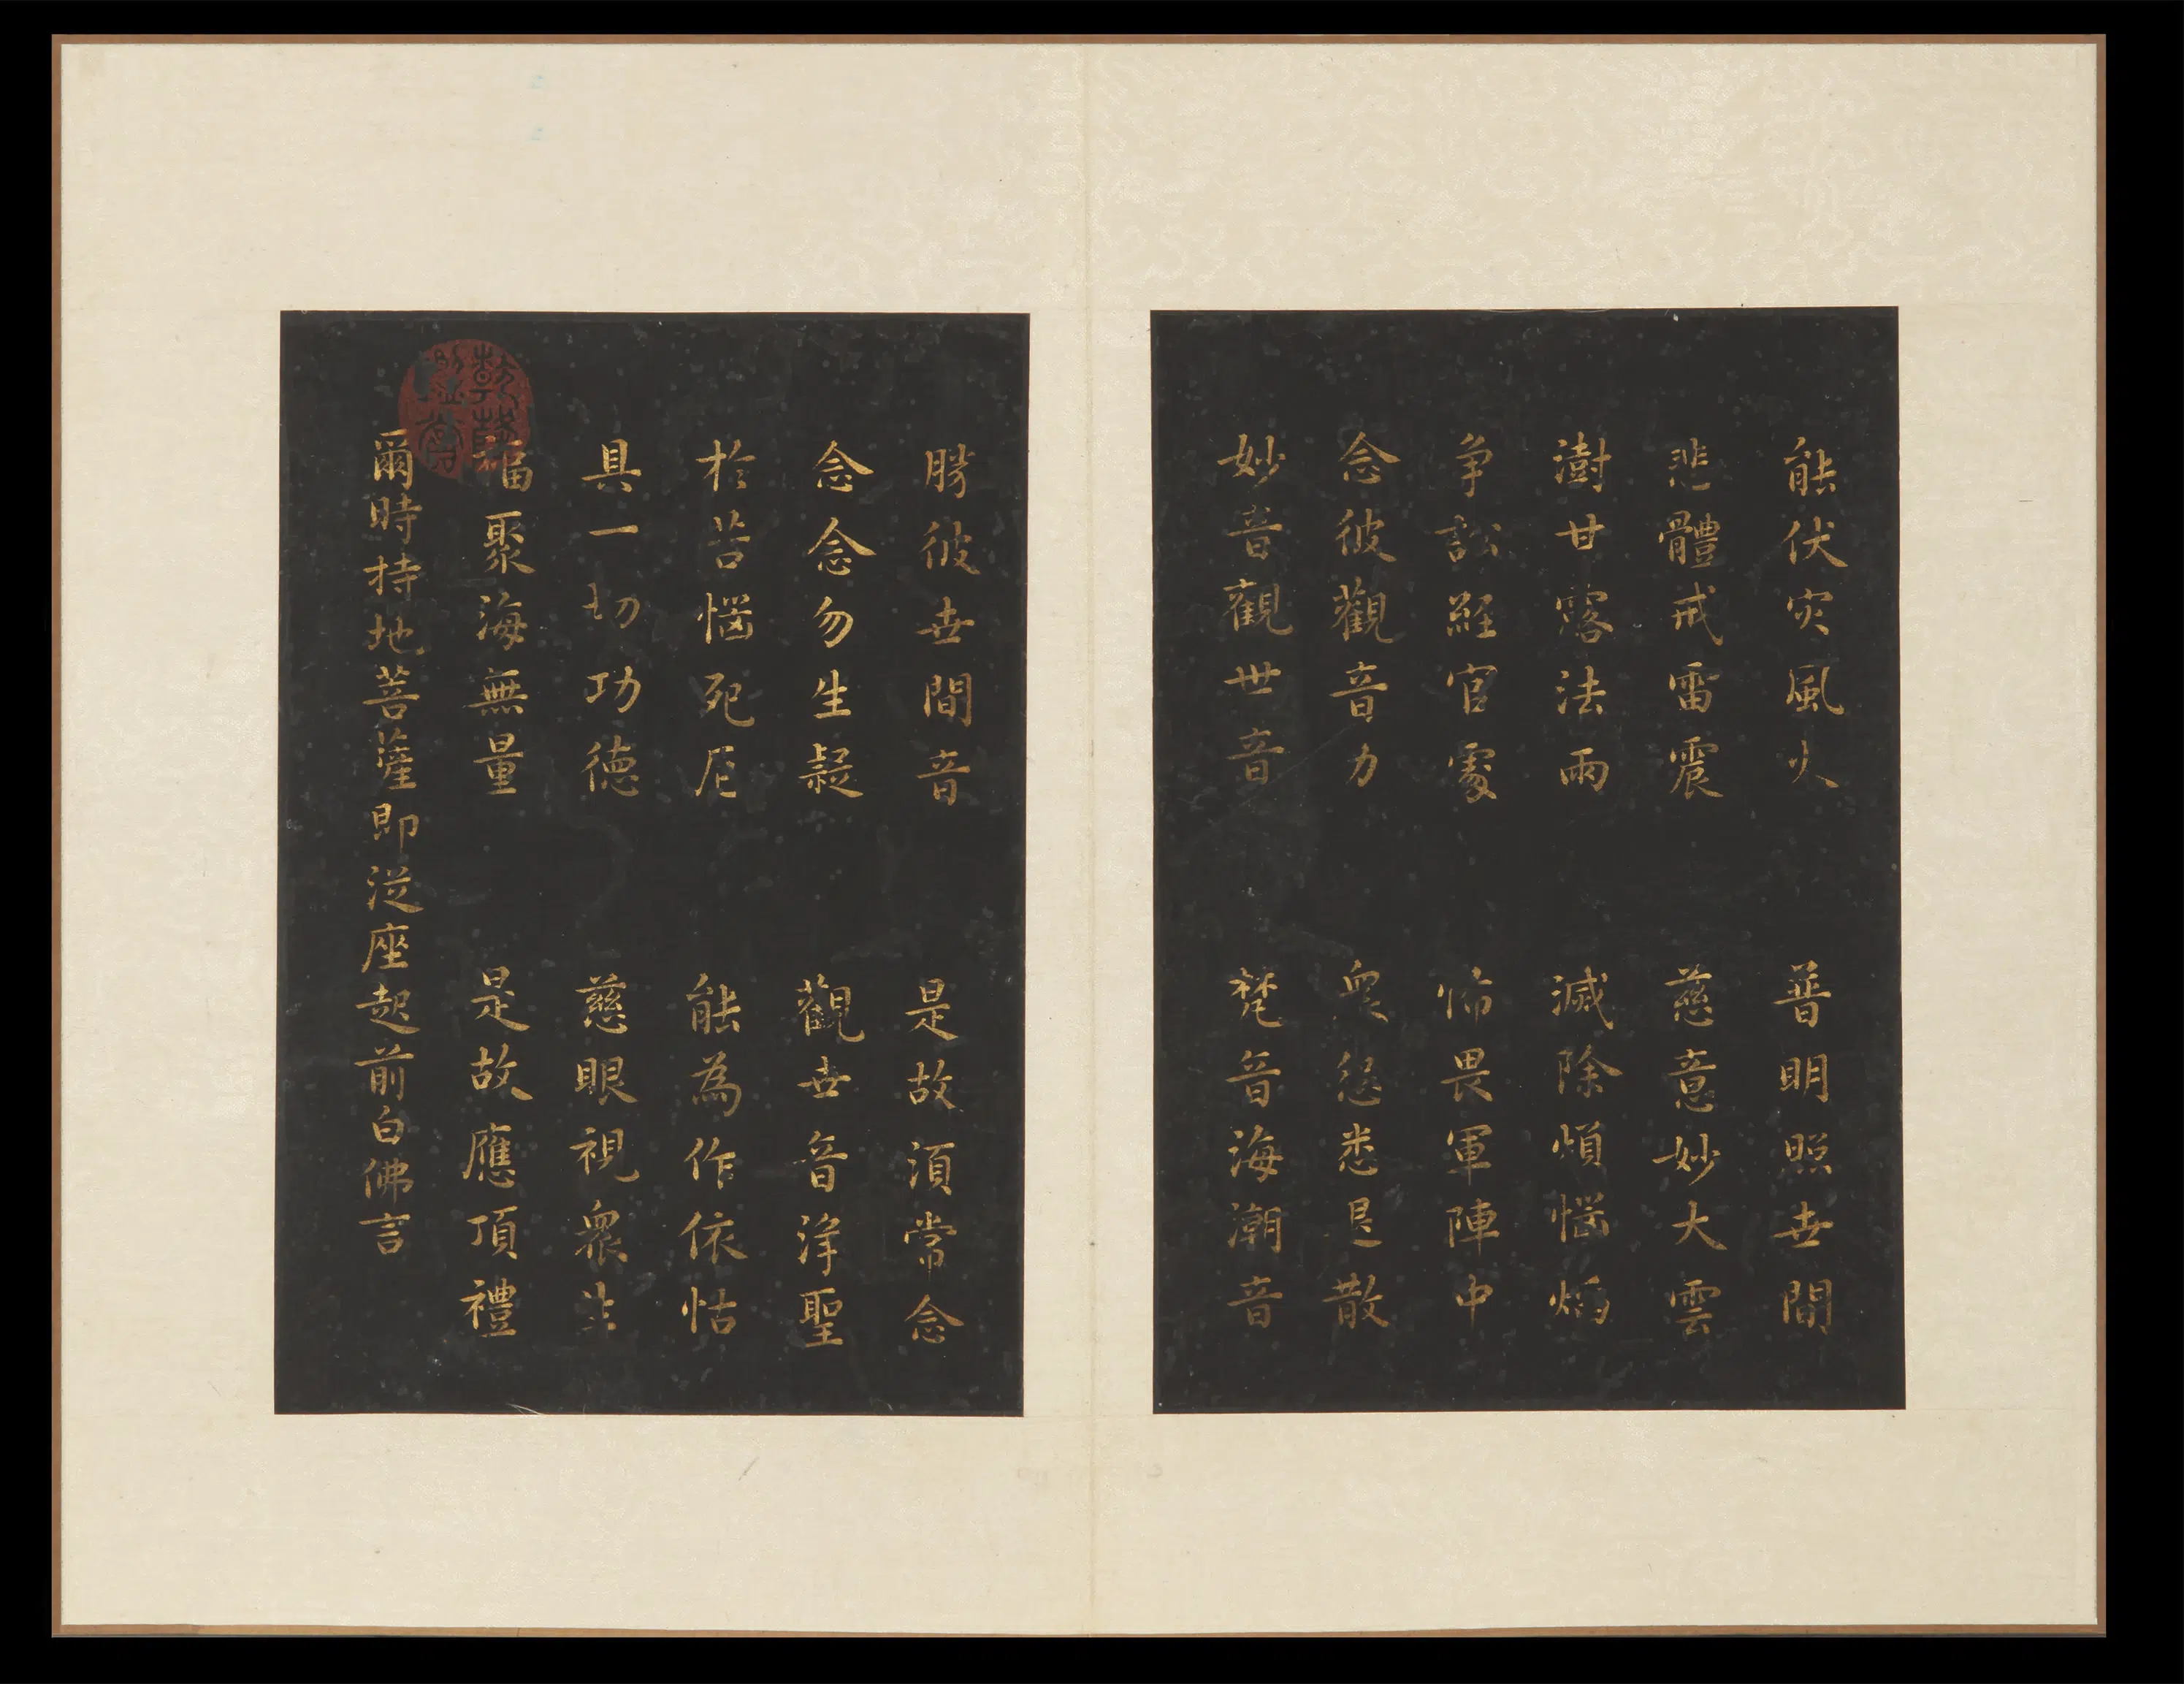 能伏灾風火 普明照世間
悲體戒雷震 慈意妙大雲
澍甘露法雨 滅除煩惱焰
爭訟經官處 怖畏軍陣中
念彼觀音力 衆怨悉退散
妙音觀世音 梵音海潮音
勝彼世間音 是故須常念
念念勿生疑 觀世音淨聖
於苦惱死厄 能為作依怙
具一切功德 慈眼視衆生
福聚海無量 是故應頂禮
爾時持地菩薩即從座起前白佛言
乾隆鑒賞